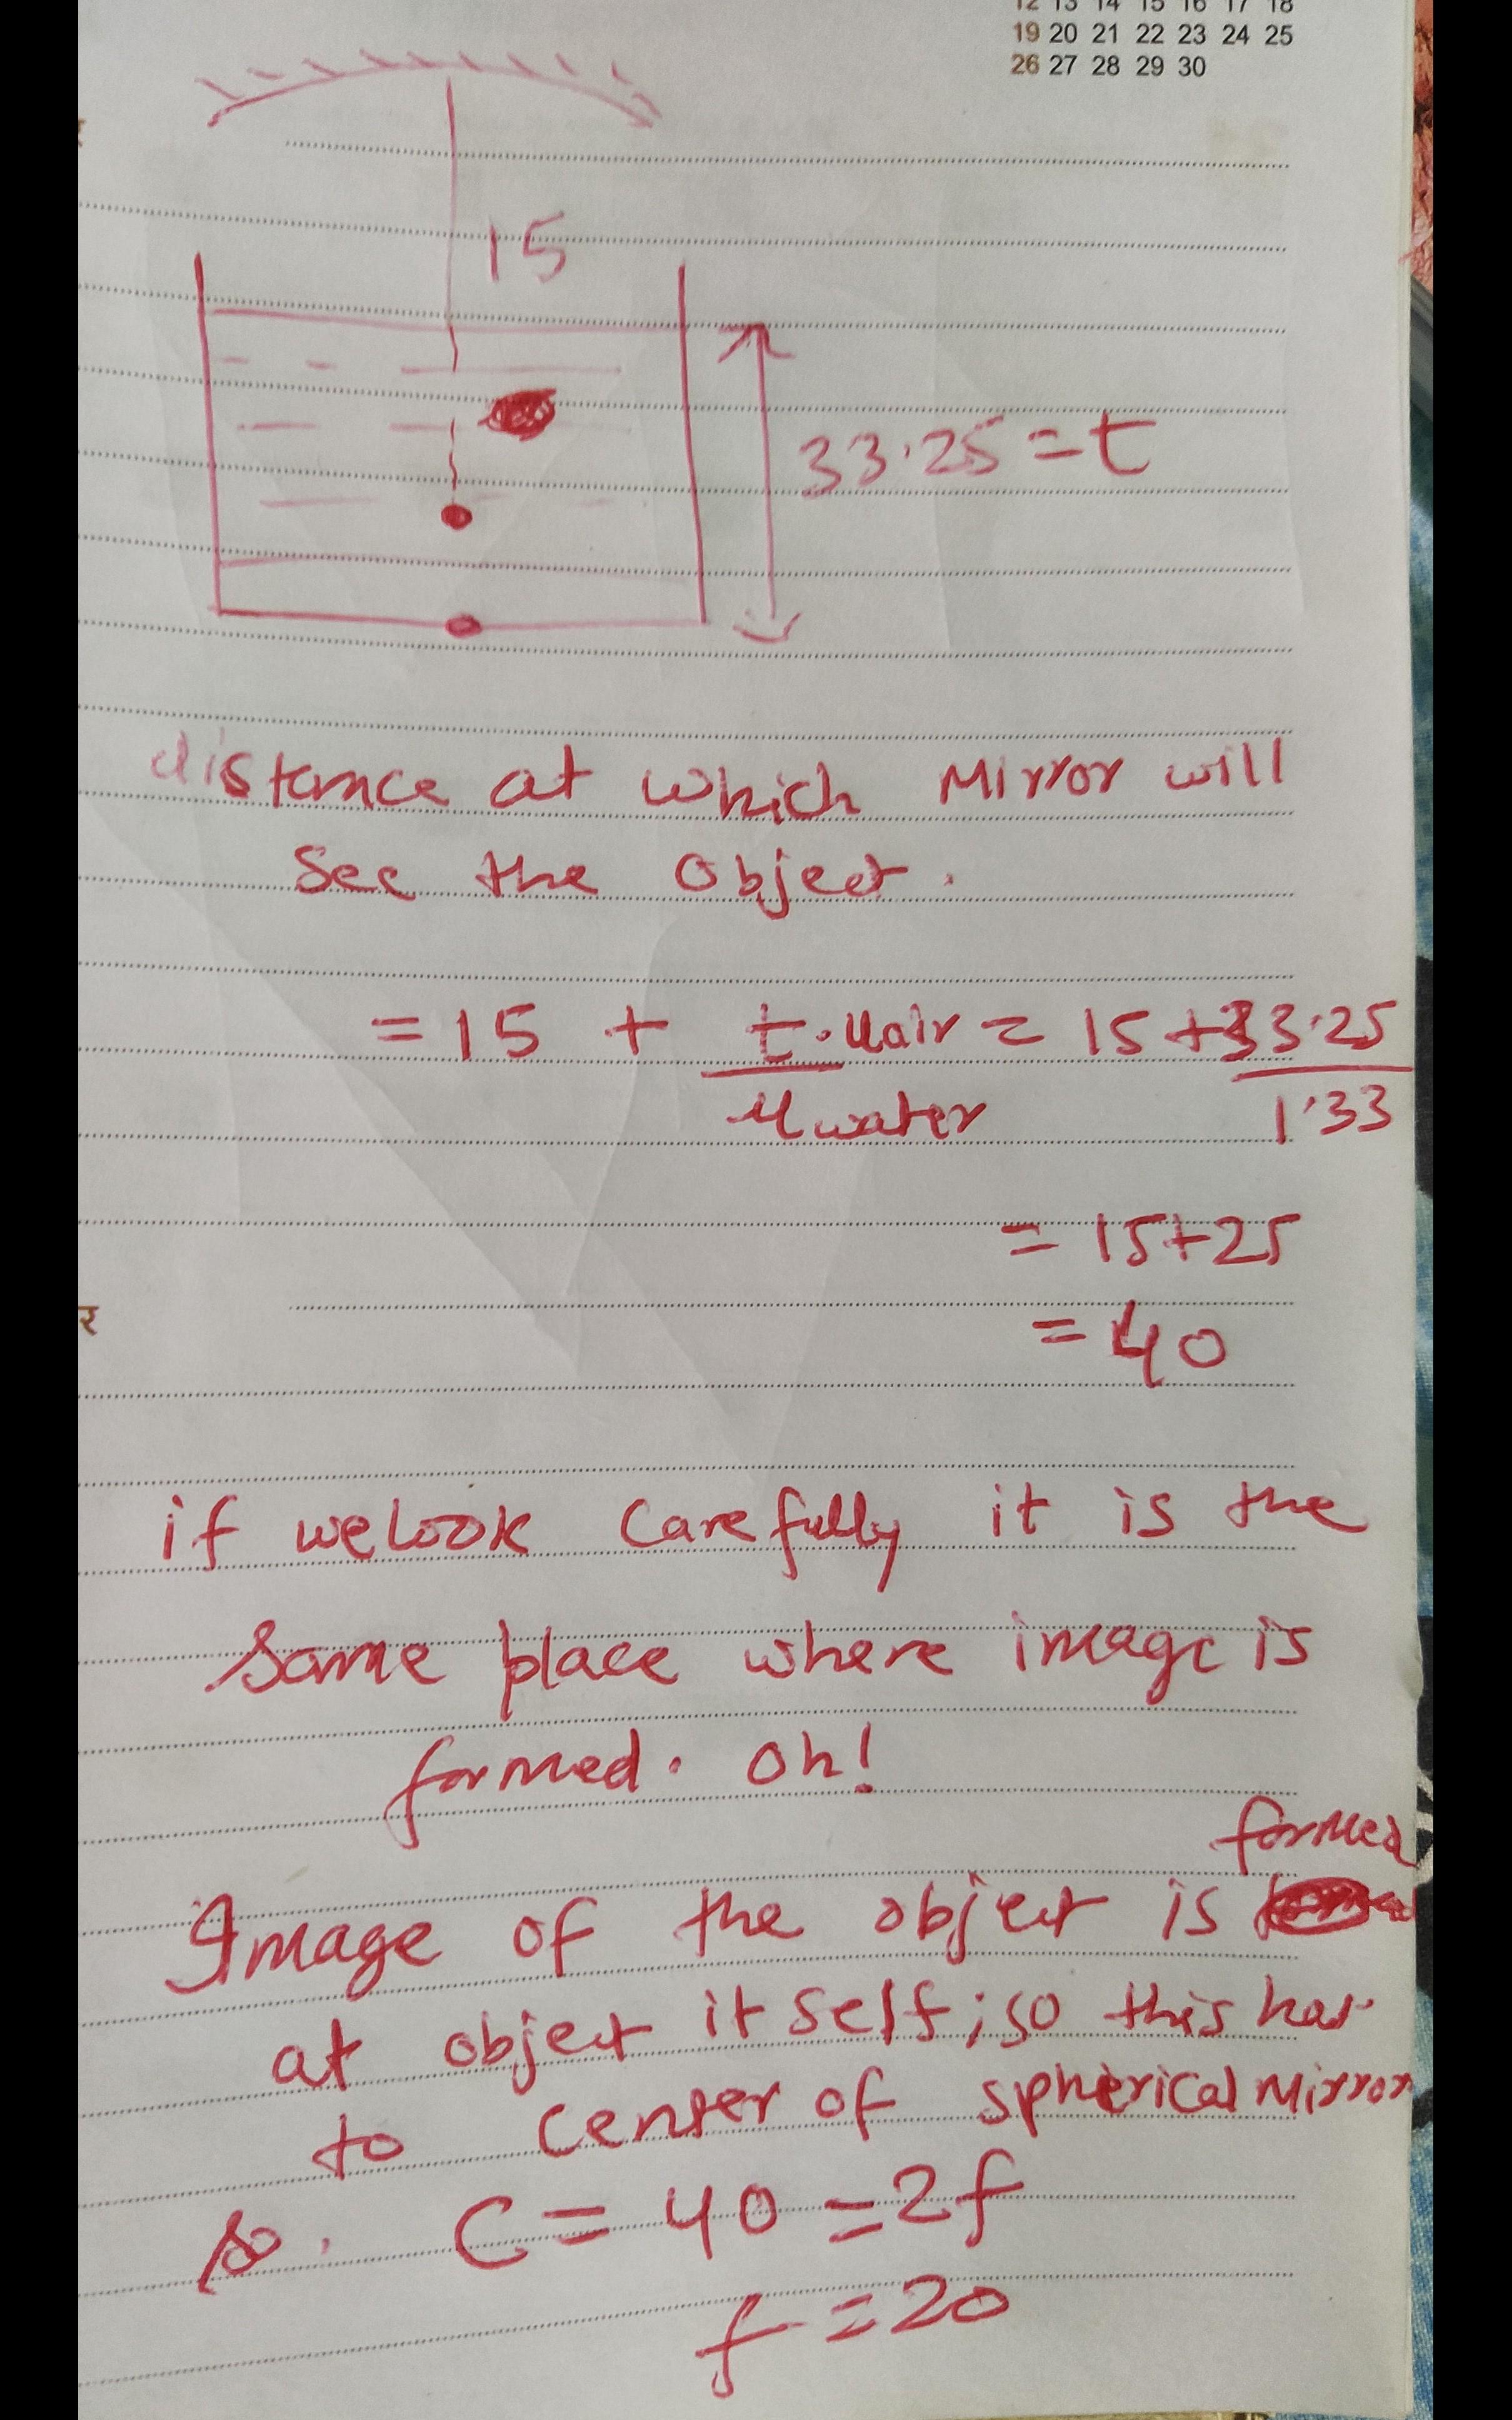 12 13 14 15 16 17 18
19 20 21 22 23 24 25
26 27 28 29 30
15
33.25 = t
distance at which Mirror will
See the Object.
= 15 + t . μair = 15 + 33.25
μwater 1.33
= 15+25
= 40
र
if we look carefully it is the
Same place where image is
formed. Oh!
formed
Image of the object is
at object it self; so this has
to center of spherical Mirror
so. C = 40 = 2f
f = 20